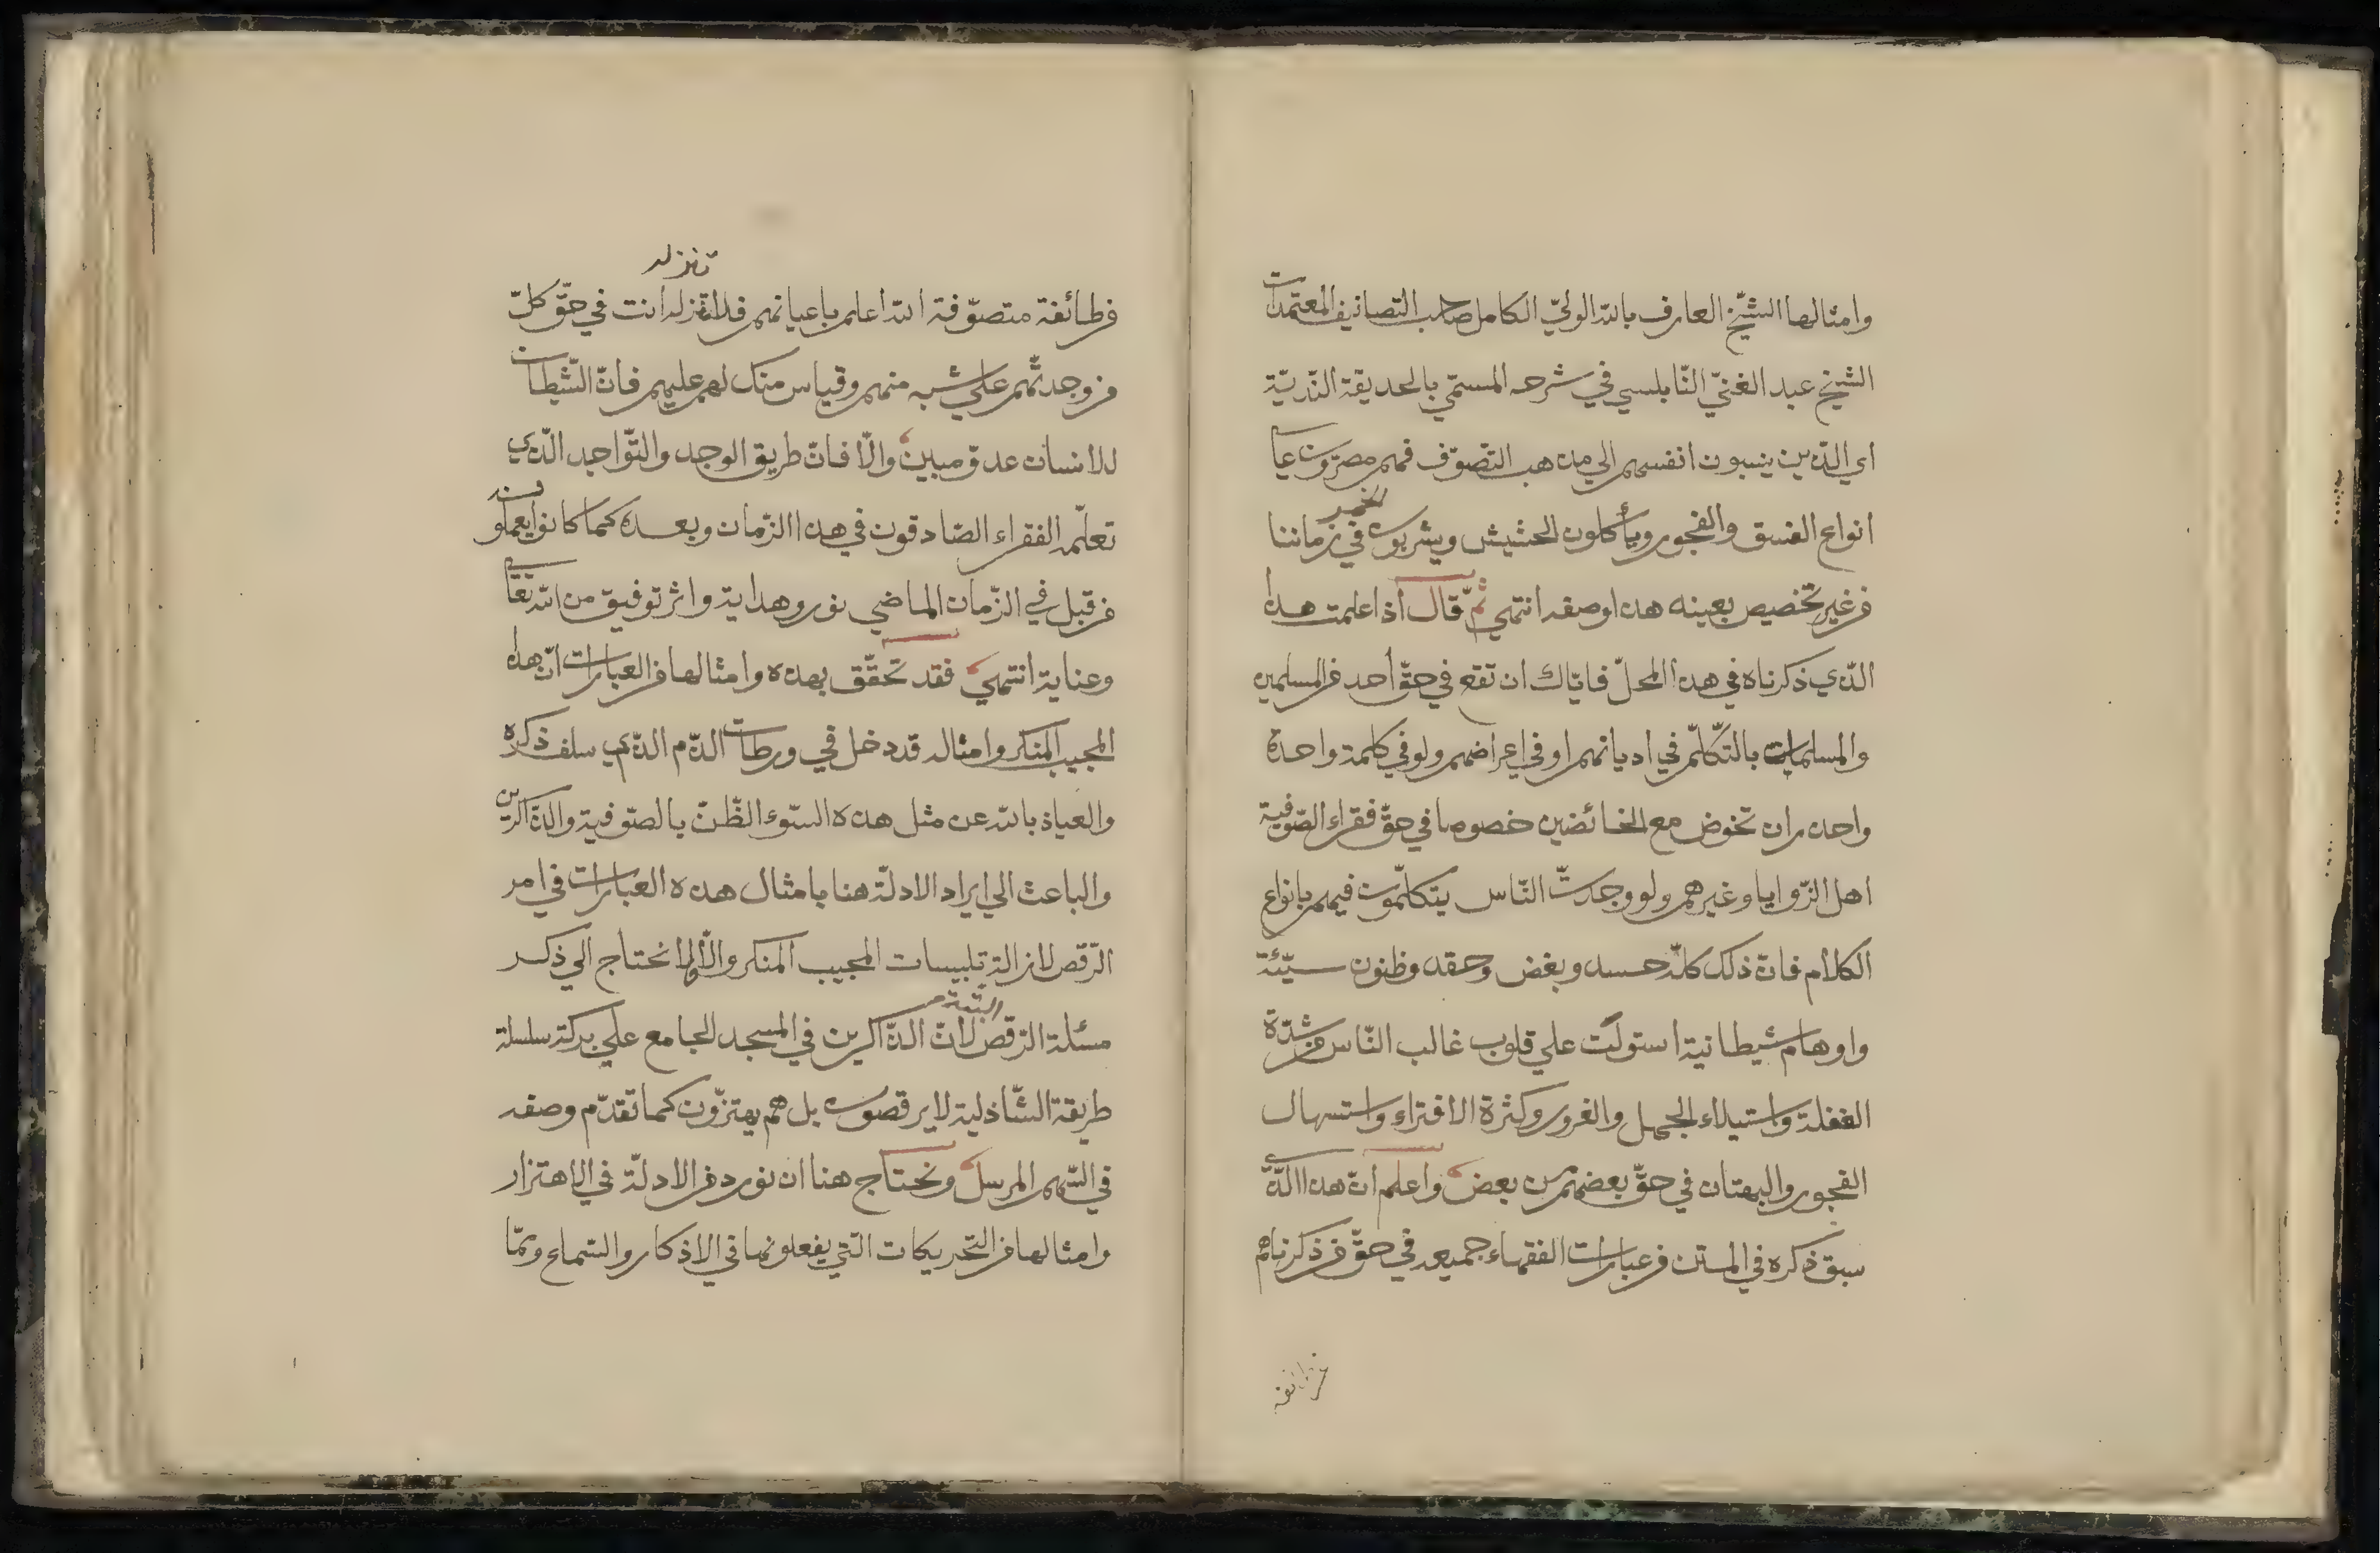 وامثالها الشّيخ العارف بالله الوليّ الكامل صاحب التصانيف المعتمدات
الشيخ عبد الغنيّ النّابلسي في شرحه المسمّي بالحديقة النّديّة
اي الّذين ينسبون انفسهم الي مذهب التصوّف فهم مصرّون علي
انواع الفسق والفجور ويأكلون الحشيش ويشربون الخمر في زماننا
من غير تخصيص بعينه هذا وصفه انتهي ثمّ قال اذا علمت هذا
الّذي ذكرناه في هذا المحلّ فايّاك ان تقع في حقّ أحد من المسلمين
والمسلمات بالتّكلّم في اديانهم او في اعراضهم ولو في كلمة واحدة
واحذر ان تخوض مع الخائضين خصوصا في حقّ فقراء الصّوفية
اهل الزّوايا وغيرهم ولو وجدتّ النّاس يتكلّمون فيهم بانواع
الكلام فانّ ذلك كلّه حسد وبغض وحقد وظنون سيّئة
واوهام شيطانية استولت علي قلوب غالب النّاس من شدّة
الغفلة واستيلاء الجهل والغرور وكثرة الافتراء واستسهال
الفجور والبهتان في حقّ بعضهم من بعض واعلم انّ هذا الّذي
سبق ذكره في المتن من عبارات الفقهاء جميعه في حقّ من ذكرناهم
من طائفة
تنزله
من طائفة متصوّفة الله اعلم باعيانهم فلا تنزله انت في حقّ كلّ
من وجدتّهم علي شبه منهم وقياس منك لهم عليهم فانّ الشّيطان
للانسان عدوّ مبين والّا فانّ طريق الوجد والتّواجد الّذي
تعلّمه الفقراء الصّادقون في هذا الزّمان وبعده كما كانوا يعملونه
من قبل في الزّمان الماضي نور وهداية واثر توفيق من الله تعالي
وعناية انتهي فقد تحقّق بهذه وامثالها من العبارات انّ هذا
المجيب المنكر وامثاله قد دخل في ورطات الذّم الّذي سلف ذكره
والعياذ بالله عن مثل هذه السّوء الظّنّ بالصّوفية والذّاكرين
والباعث الي ايراد الادلّة هنا بامثال هذه العبارات في امر
الرّقص لازالة تلبيسات المجيب المنكر والّا لما نحتاج الي ذكر
مسئلة الرّقص البتة لانّ الذّاكرين في المسجد الجامع علي بركة سلسلة
طريقة الشّاذلية لا يرقصون بل هم يهتزّون كما تقدّم وصفه
في السّهم المرسل ونحتاج هنا ان نورد من الادلّة في الاهتزار
وامثالها من التّحريكات الّتي يفعلونها في الاذكار والسّماع وممّا